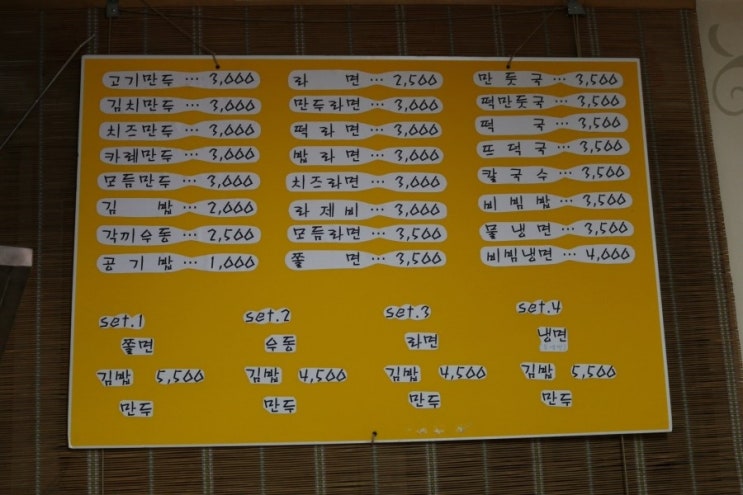 고기만두 … 3,000
김치만두 … 3,000
치즈만두 … 3,000
카레만두 … 3,000
모듬만두 … 3,000
김 밥 … 2,000
각끼수동 … 2,500
공기밥 … 1,000
라 면 … 2,500
만두라면 … 3,000
떡라면 … 3,000
밥라면 … 3,000
치즈라면 … 3,000
라제비 … 3,000
모듬라면 … 3,500
쫄 면 … 3,500
만둣국 … 3,500
떡만둣국 … 3,500
떡 국 … 3,500
뜨덕국 … 3,500
칼국수 … 3,500
비빔밥 … 3,500
물냉면 … 3,500
비빔냉면 … 4,000
set.1
쫄면
김밥 5,500
만두
set.2
수동
김밥 4,500
만두
set.3
라면
김밥 4,500
만두
set.4
냉면
김밥 5,500
만두